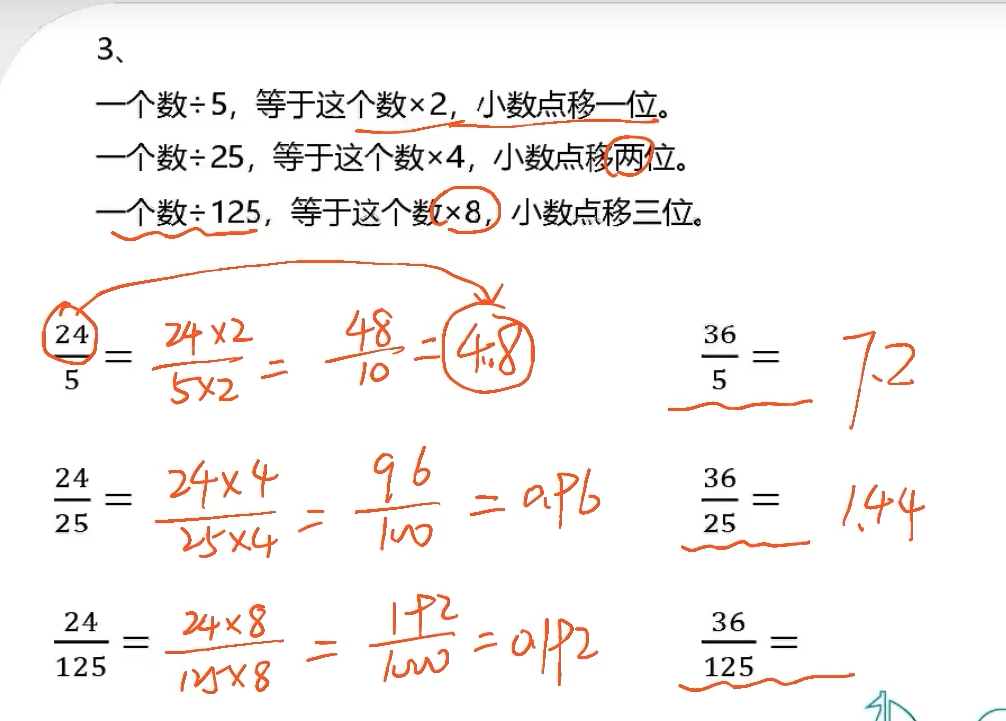 3、
一个数÷5，等于这个数×2，小数点移一位。
一个数÷25，等于这个数×4，小数点移两位。
一个数÷125，等于这个数×8，小数点移三位。
24/5 = 24×2/5×2 = 48/10 = 4.8
36/5 = 7.2
24/25 = 24×4/25×4 = 96/100 = 0.96
36/25 = 1.44
24/125 = 24×8/125×8 = 192/1000 = 0.192
36/125 =